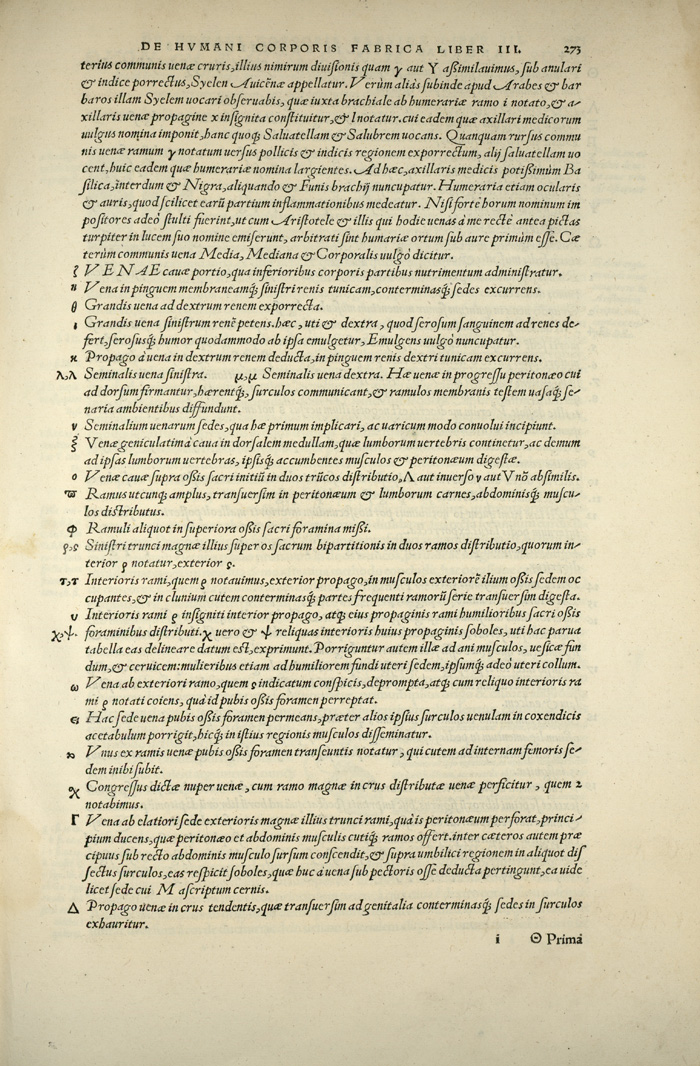 DE HVMANI CORPORIS FABRICA LIBER III. 273
terius communis uenæ cruris, illius nimirum diuisionis quam γ aut Y aßimilauimus, sub anulari
& indice porrectus, Syelen Auicẽnæ appellatur. Verùm aliàs subinde apud Arabes & bar
baros illam Syelem uocari obseruabis, quæ iuxta brachiale ab humerariæ ramo i notato, & a-
xillaris uenæ propagine x insignita constituitur, & l notatur. cui eadem quæ axillari medicorum
uulgus nomina imponit, hanc quoq; Saluatellam & Salubrem uocans. Quanquam rursus commu
nis uenæ ramum γ notatum uersus pollicis & indicis regionem exporrectum, alij saluatellam uo
cent, huic eadem quæ humerariæ nomina largientes. Ad hæc, axillaris medicis potißimùm Ba
silica, interdum & Nigra, aliquando & Funis brachij nuncupatur. Humeraria etiam ocularis
& auris, quod scilicet earũ partium inflammationibus medeatur. Nisi fortè horum nominum im
positores adeò stulti fuerint, ut cum Aristotele & illis qui hodie uenas à me rectè antea pictas
turpiter in lucem suo nomine emiserunt, arbitrati sint humariæ ortum sub aure primùm esse. Cæ
terùm communis uena Media, Mediana & Corporalis uulgò dicitur.
ζ VENAE cauæ portio, qua inferioribus corporis partibus nutrimentum administratur.
η Vena in pinguem membraneamq́; sinistri renis tunicam, conterminasq́; sedes excurrens.
θ Grandis uena ad dextrum renem exporrecta.
ι Grandis uena sinistrum renẽ petens. hæc, uti & dextra, quod serosum sanguinem ad renes de-
fert, serosusq́; humor quodammodo ab ipsa emulgetur, Emulgens uulgò nuncupatur.
κ Propago à uena in dextrum renem deducta, in pinguem renis dextri tunicam excurrens.
λ,λ Seminalis uena sinistra. μ,μ Seminalis uena dextra. Hæ uenæ in progressu peritonæo cui
ad dorsum firmantur, hærentq́;, surculos communicant, & ramulos membranis testem uasaq́; se-
naria ambientibus diffundunt.
ν Seminalium uenarum sedes, qua hæ primum implicari, ac uaricum modo conuolui incipiunt.
ξ Venæ geniculatim à caua in dorsalem medullam, quæ lumborum uertebris continetur, ac demum
ad ipsas lumborum uertebras, ipsisq́; accumbentes musculos & peritonæum digestæ.
ο Venæ cauæ supra oßis sacri initiũ in duos trũcos distributio, Λ aut inuerso υ aut V nõ absimilis.
ϖ Ramus utcunq; amplus, transuersim in peritonæum & lumborum carnes, abdominisq́; muscu-
los distributus.
Φ Ramuli aliquot in superiora oßis sacri foramina mißi.
ρ,ς Sinistri trunci magnæ illius super os sacrum bipartitionis in duos ramos distributio, quorum in-
terior ρ notatur, exterior ς.
τ,τ Interioris rami, quem ρ notauimus, exterior propago, in musculos exteriorẽ ilium oßis sedem oc
cupantes, & in clunium cutem conterminasq́; partes frequenti ramorũ serie transuersim digesta.
υ Interioris rami ρ insigniti interior propago, atq; eius propaginis rami humilioribus sacri oßis
χ,ψ. foraminibus distributi. χ uero & ψ reliquas interioris huius propaginis soboles, uti hac parua
tabella eas delineare datum est, exprimunt. Porriguntur autem illæ ad ani musculos, uesicæ fun
dum, & ceruicem: mulieribus etiam ad humiliorem fundi uteri sedem, ipsumq́; adeò uteri collum.
ω Vena ab exteriori ramo, quem ς indicatum conspicis, deprompta, atq; cum reliquo interioris ra
mi ρ notati coiens, quà id pubis oßis foramen perreptat.
Hac sede uena pubis oßis foramen permeans, præter alios ipsius surculos uenulam in coxendicis
acetabulum porrigit, hicq́; in istius regionis musculos disseminatur.
Vnus ex ramis uenæ pubis oßis foramen transeuntis notatur, qui cutem ad internam femoris se-
dem inibi subit.
Congressus dictæ nuper uenæ, cum ramo magnæ in crus distributæ uenæ perficitur, quem 2
notabimus.
Γ Vena ab elatiori sede exterioris magnæ illius trunci rami, quà is peritonæum perforat, princi-
pium ducens, quæ peritonæo et abdominis musculis cutiq́; ramos offert. inter cæteros autem præ
cipuus sub recto abdominis musculo sursum conscendit, & supra umbilici regionem in aliquot dis
sectus surculos, eas respicit soboles, quæ huc à uena sub pectoris osse deducta pertingunt, ea uide
licet sede cui M ascriptum cernis.
Δ Propago uenæ in crus tendentis, quæ transuersim ad genitalia conterminasq́; sedes in surculos
exhauritur.
i Θ Prima